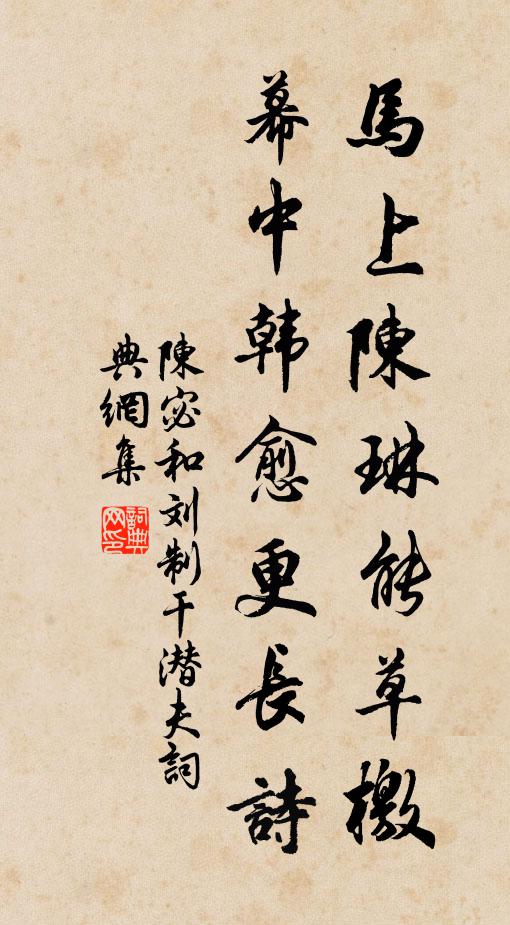 馬上陳琳能草檄
幕中韩愈更長詩
陳宓和刘制干潜夫詞
典網集
詞典网印